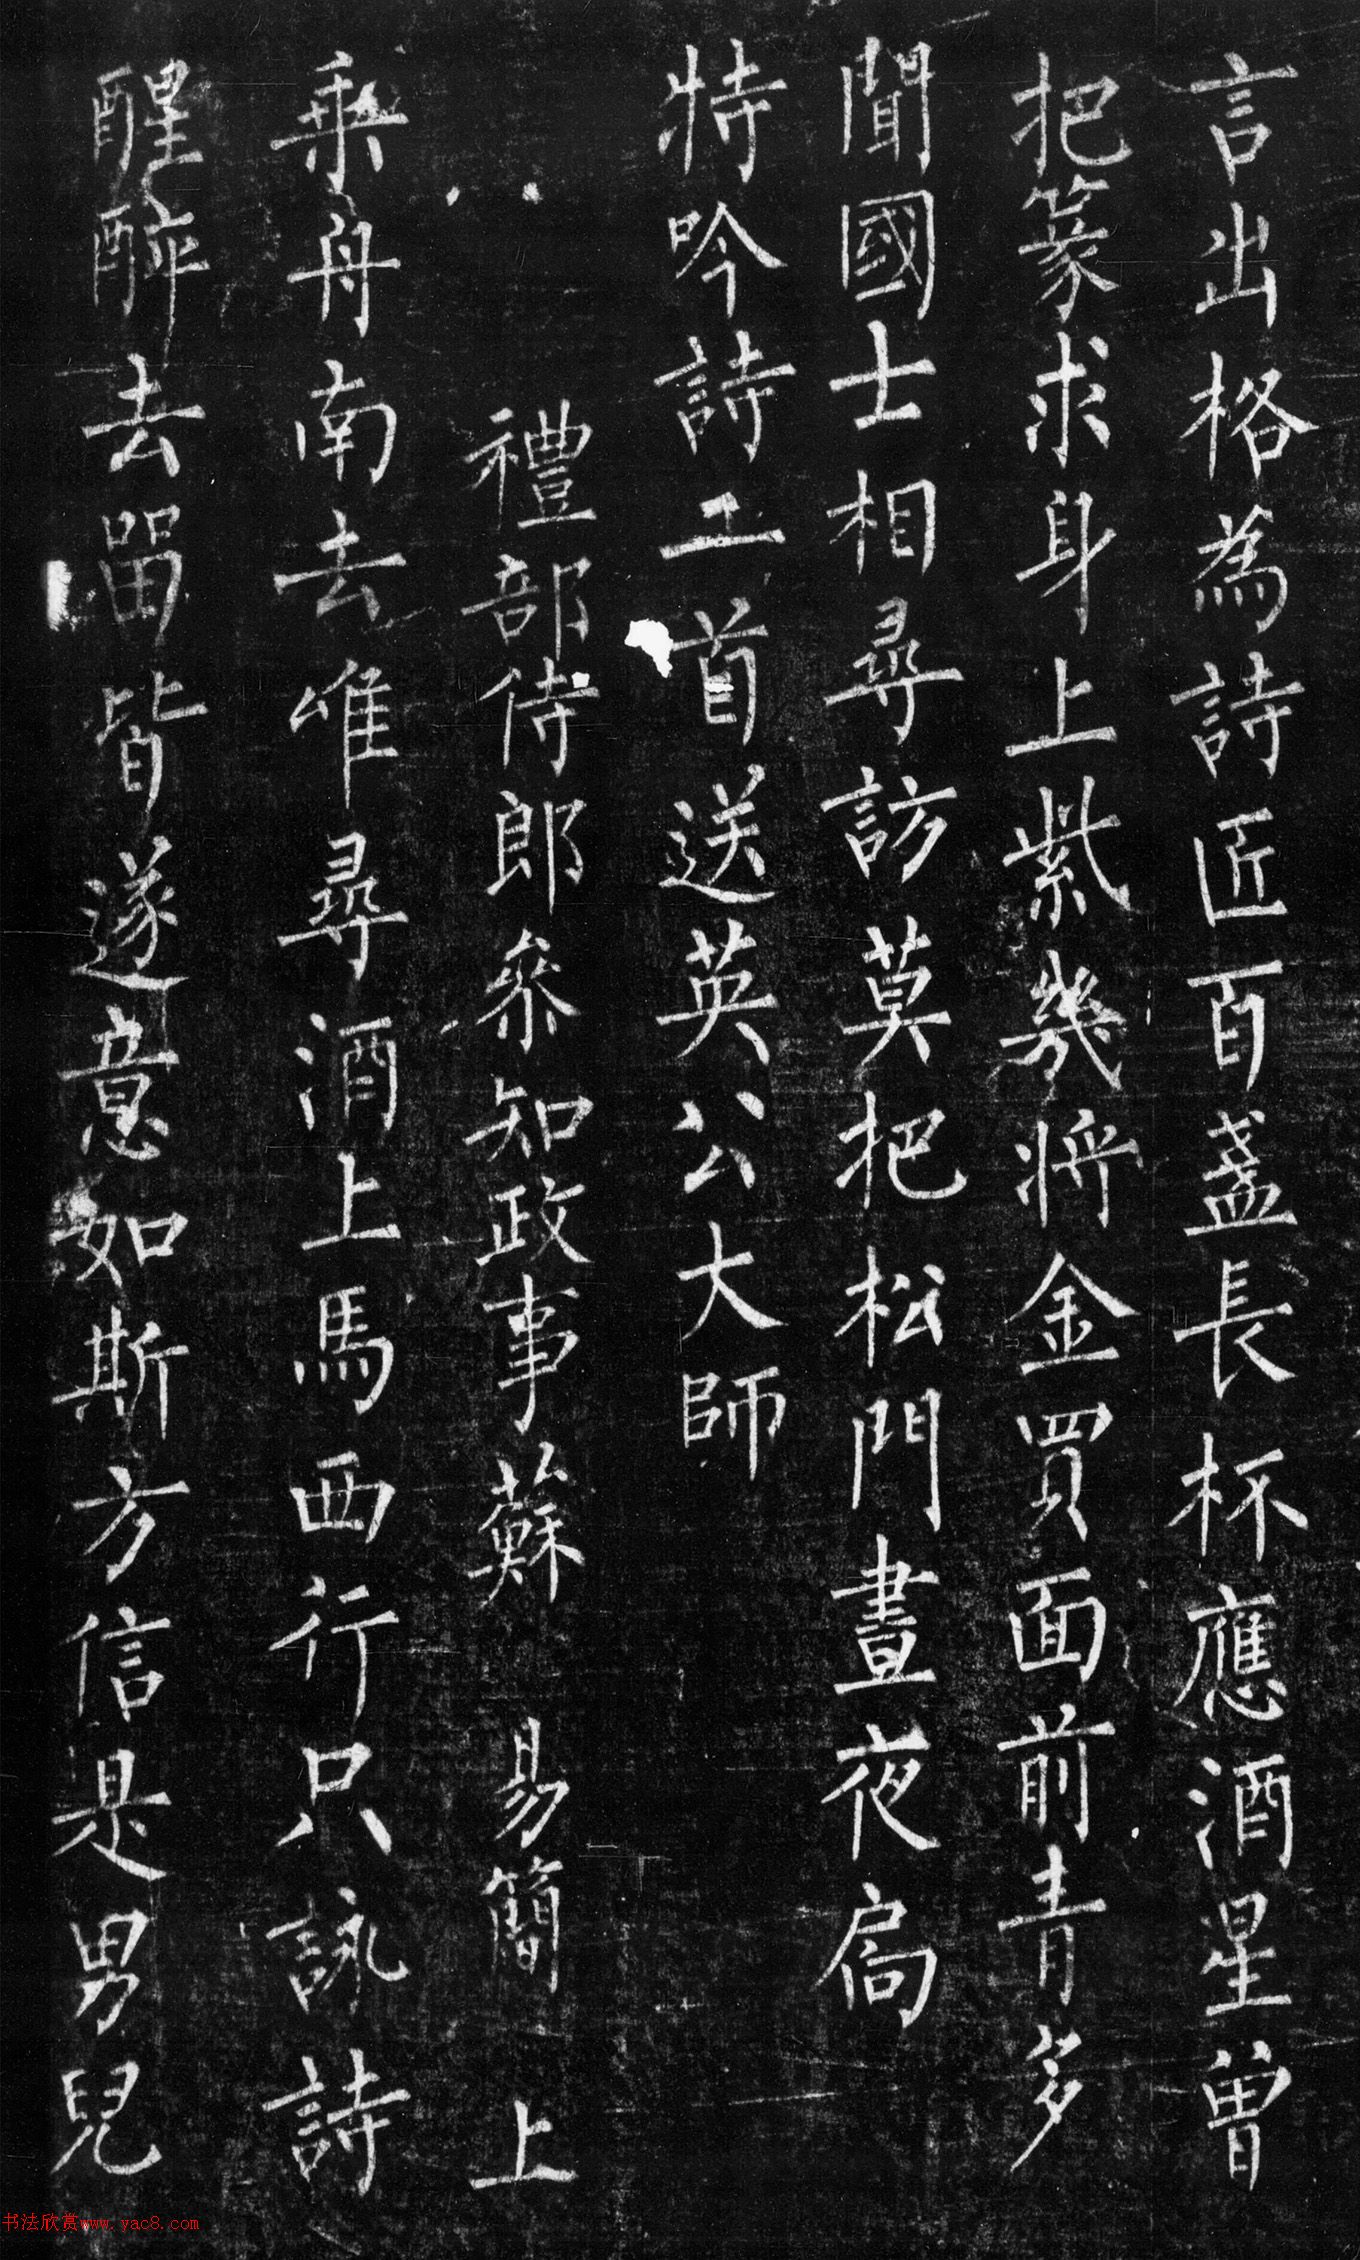 言出格為詩匠百盞長杯應酒星曾
把篆求身上紫幾將金買面前青多
聞國士相尋訪莫把松門晝夜扃
特吟詩首送英公大師
禮部侍郎叅知政事蘇 易簡 上
乘舟南去唯尋酒上馬西行只詠詩
醒醉去留皆遂意如斯方信是男兒
书法欣赏www.yac8.com